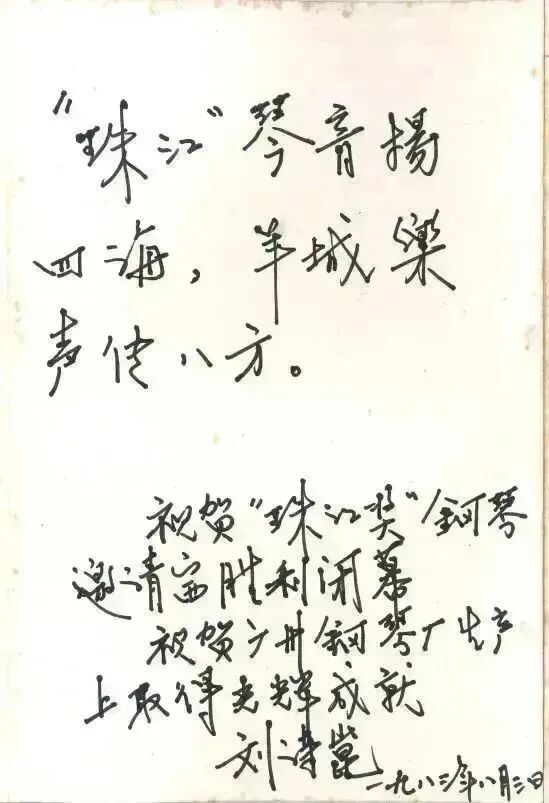 “珠江”琴音揚
四海，羊城樂
声传八方。
祝贺“珠江奖”钢琴
邀请赛胜利闭幕
祝贺广州钢琴厂生产
上取得光辉成就
刘诗崑
一九八三年八月三日